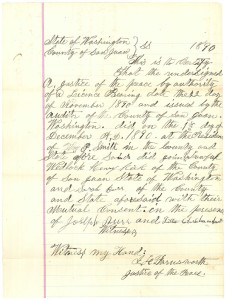 State of Washington
County of San Juan } SS 1890
This is to Certify
that the undersigned
A justice of the peace by authority
of a Licence Bearing date the day
of November 1890 and issued by the
Auditor of the County of San Juan
Washington. did on the 18 day
December A.D. 1890 at the
of Smith in the County and
State did join
Wedlock Henry of the County
of San Juan State of Washington
and Sarah of the County
and State aforesaid with their
Mutual Consent in the presence
of Joseph and
Witnesses
Witness my Hand
Farnsworth
justice of the Peace